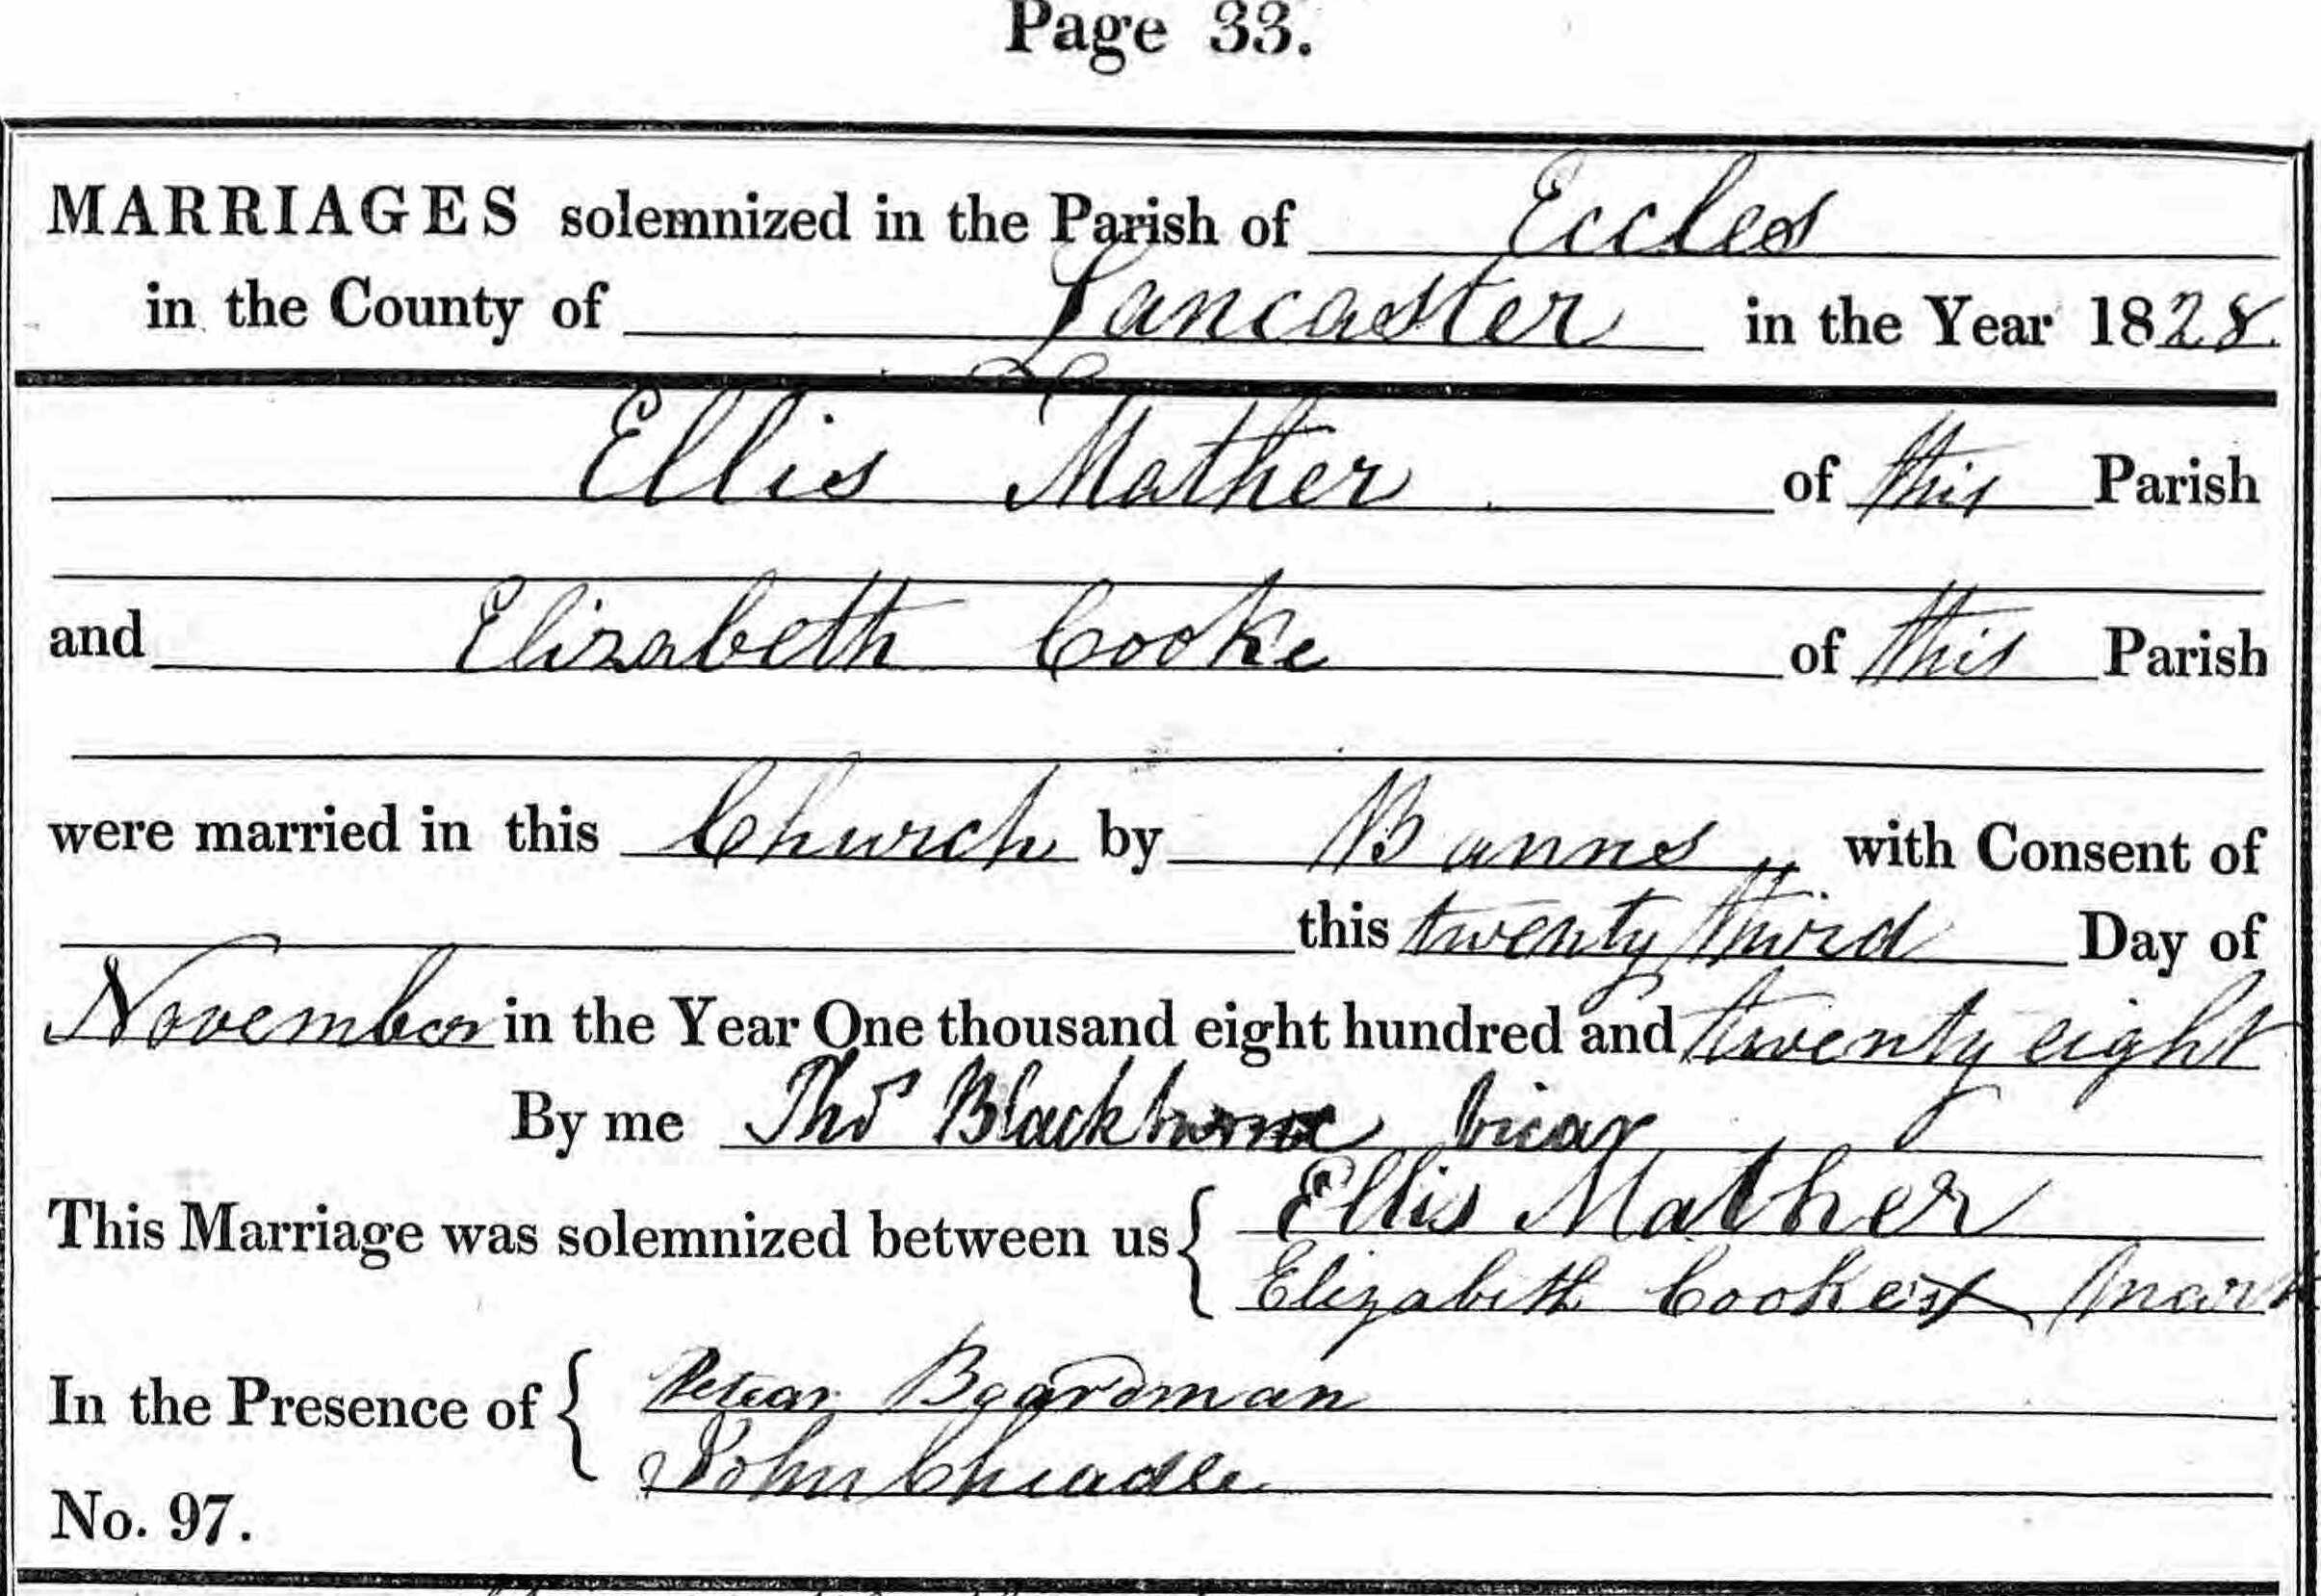 Page 33.
MARRIAGES solemnized in the Parish of Eccles
in the County of Lancaster in the Year 1828.
Ellis Mather of this Parish
and Elizabeth Cooke of this Parish
were married in this Church by Banns with Consent of
this twenty third Day of
November in the Year One thousand eight hundred and twenty eight
By me Thos Blackburne Vicar
This Marriage was solemnized between us { Ellis Mather
Elizabeth Cooke's X Mark
In the Presence of { Petear Boardman
John Cheadle
No. 97.